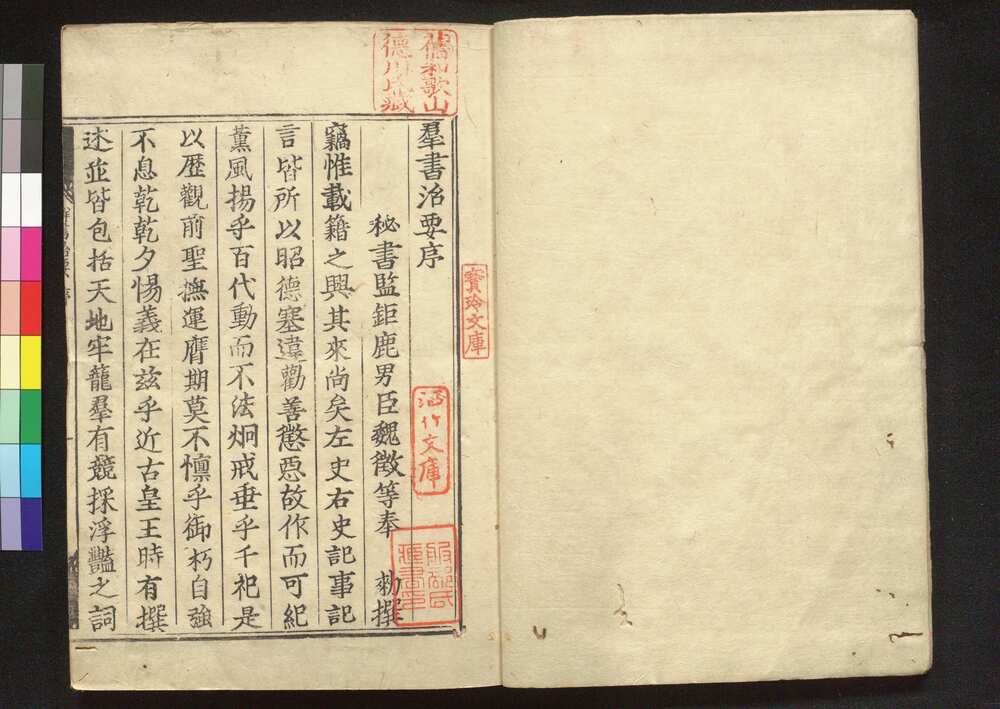 羣書治要序
秘書監鉅鹿男臣魏徵等奉 勑撰
竊惟載籍之興其來尚矣左史右史記事記
言皆所以昭德塞違勸善懲惡故作而可紀
薰風揚乎百代動而不法炯戒垂乎千祀是
以歷觀前聖撫運膺期莫不懍乎御朽自強
不息乾乾夕惕義在茲乎近古皇王時有撰
述並皆包括天地牢籠羣有競採浮豔之詞
舊和歌山
德川氏藏
寶玲文庫
文庫
服部氏